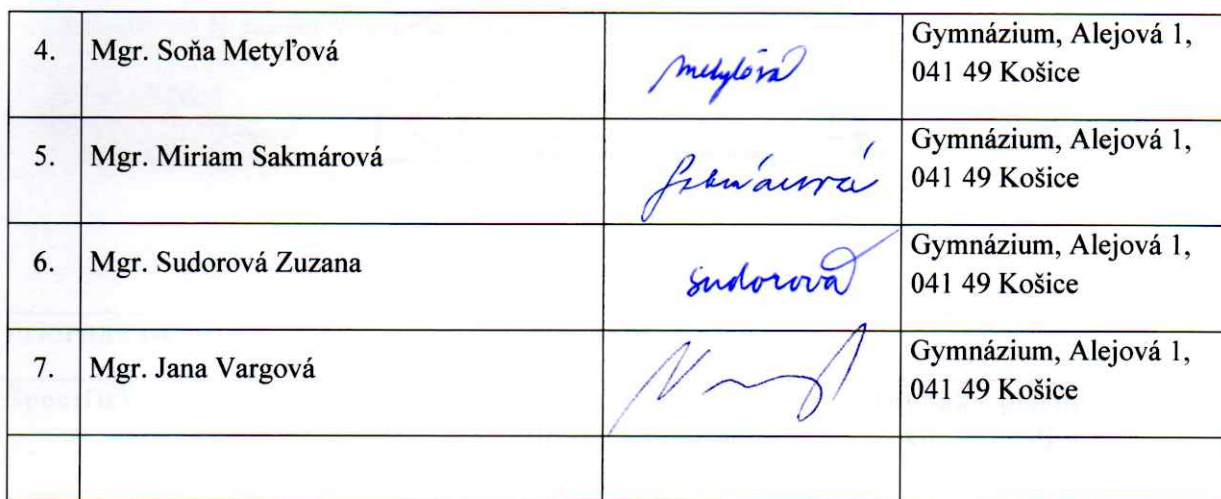 4. Mgr. Soňa Metyľová metylová Gymnázium, Alejová 1,
041 49 Košice
5. Mgr. Miriam Sakmárová Sakmárová Gymnázium, Alejová 1,
041 49 Košice
6. Mgr. Sudorová Zuzana Sudorová Gymnázium, Alejová 1,
041 49 Košice
7. Mgr. Jana Vargová Gymnázium, Alejová 1,
041 49 Košice